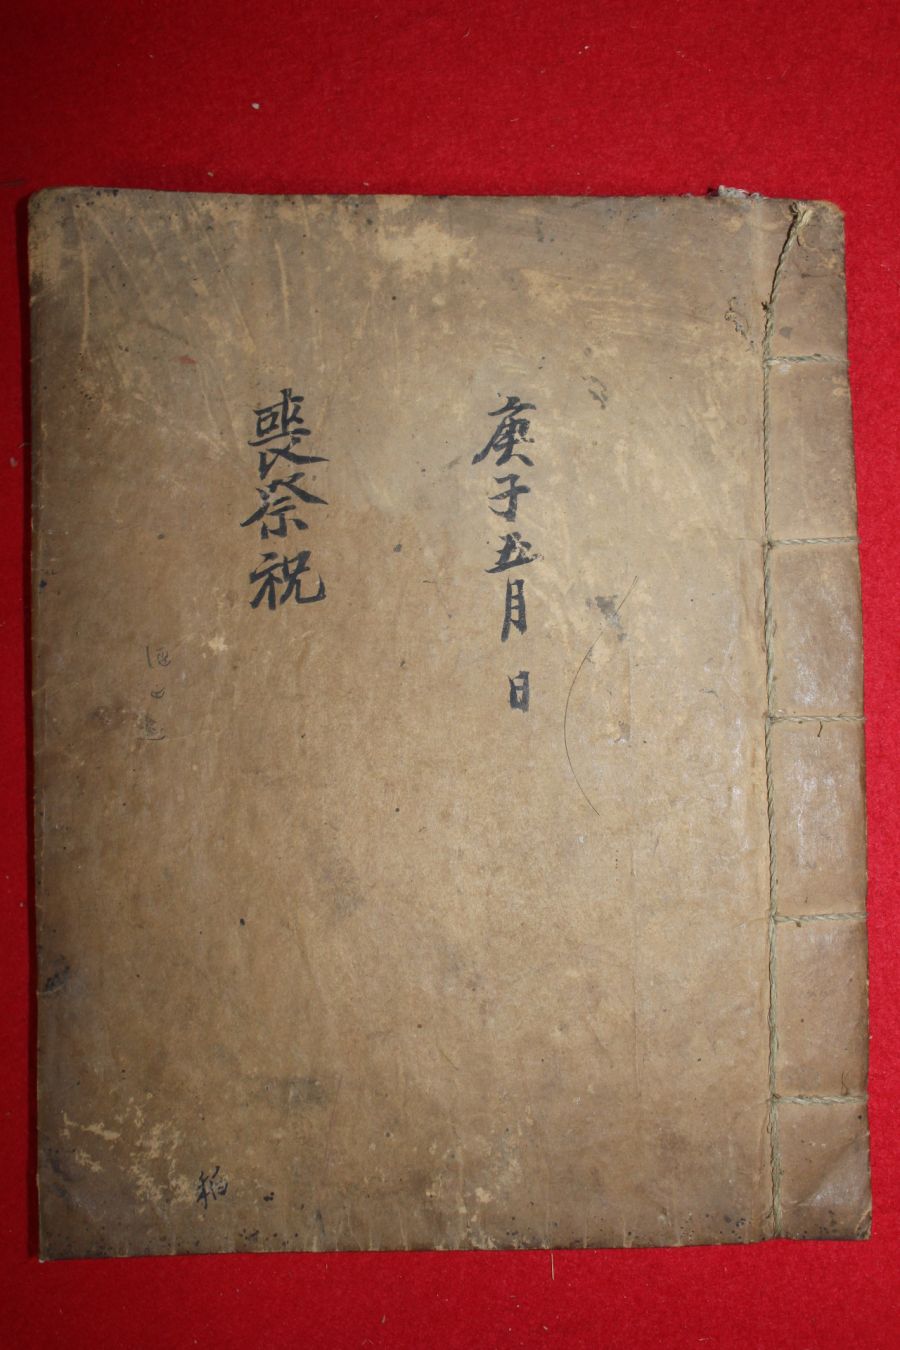 庚子五月 日
喪祭祝